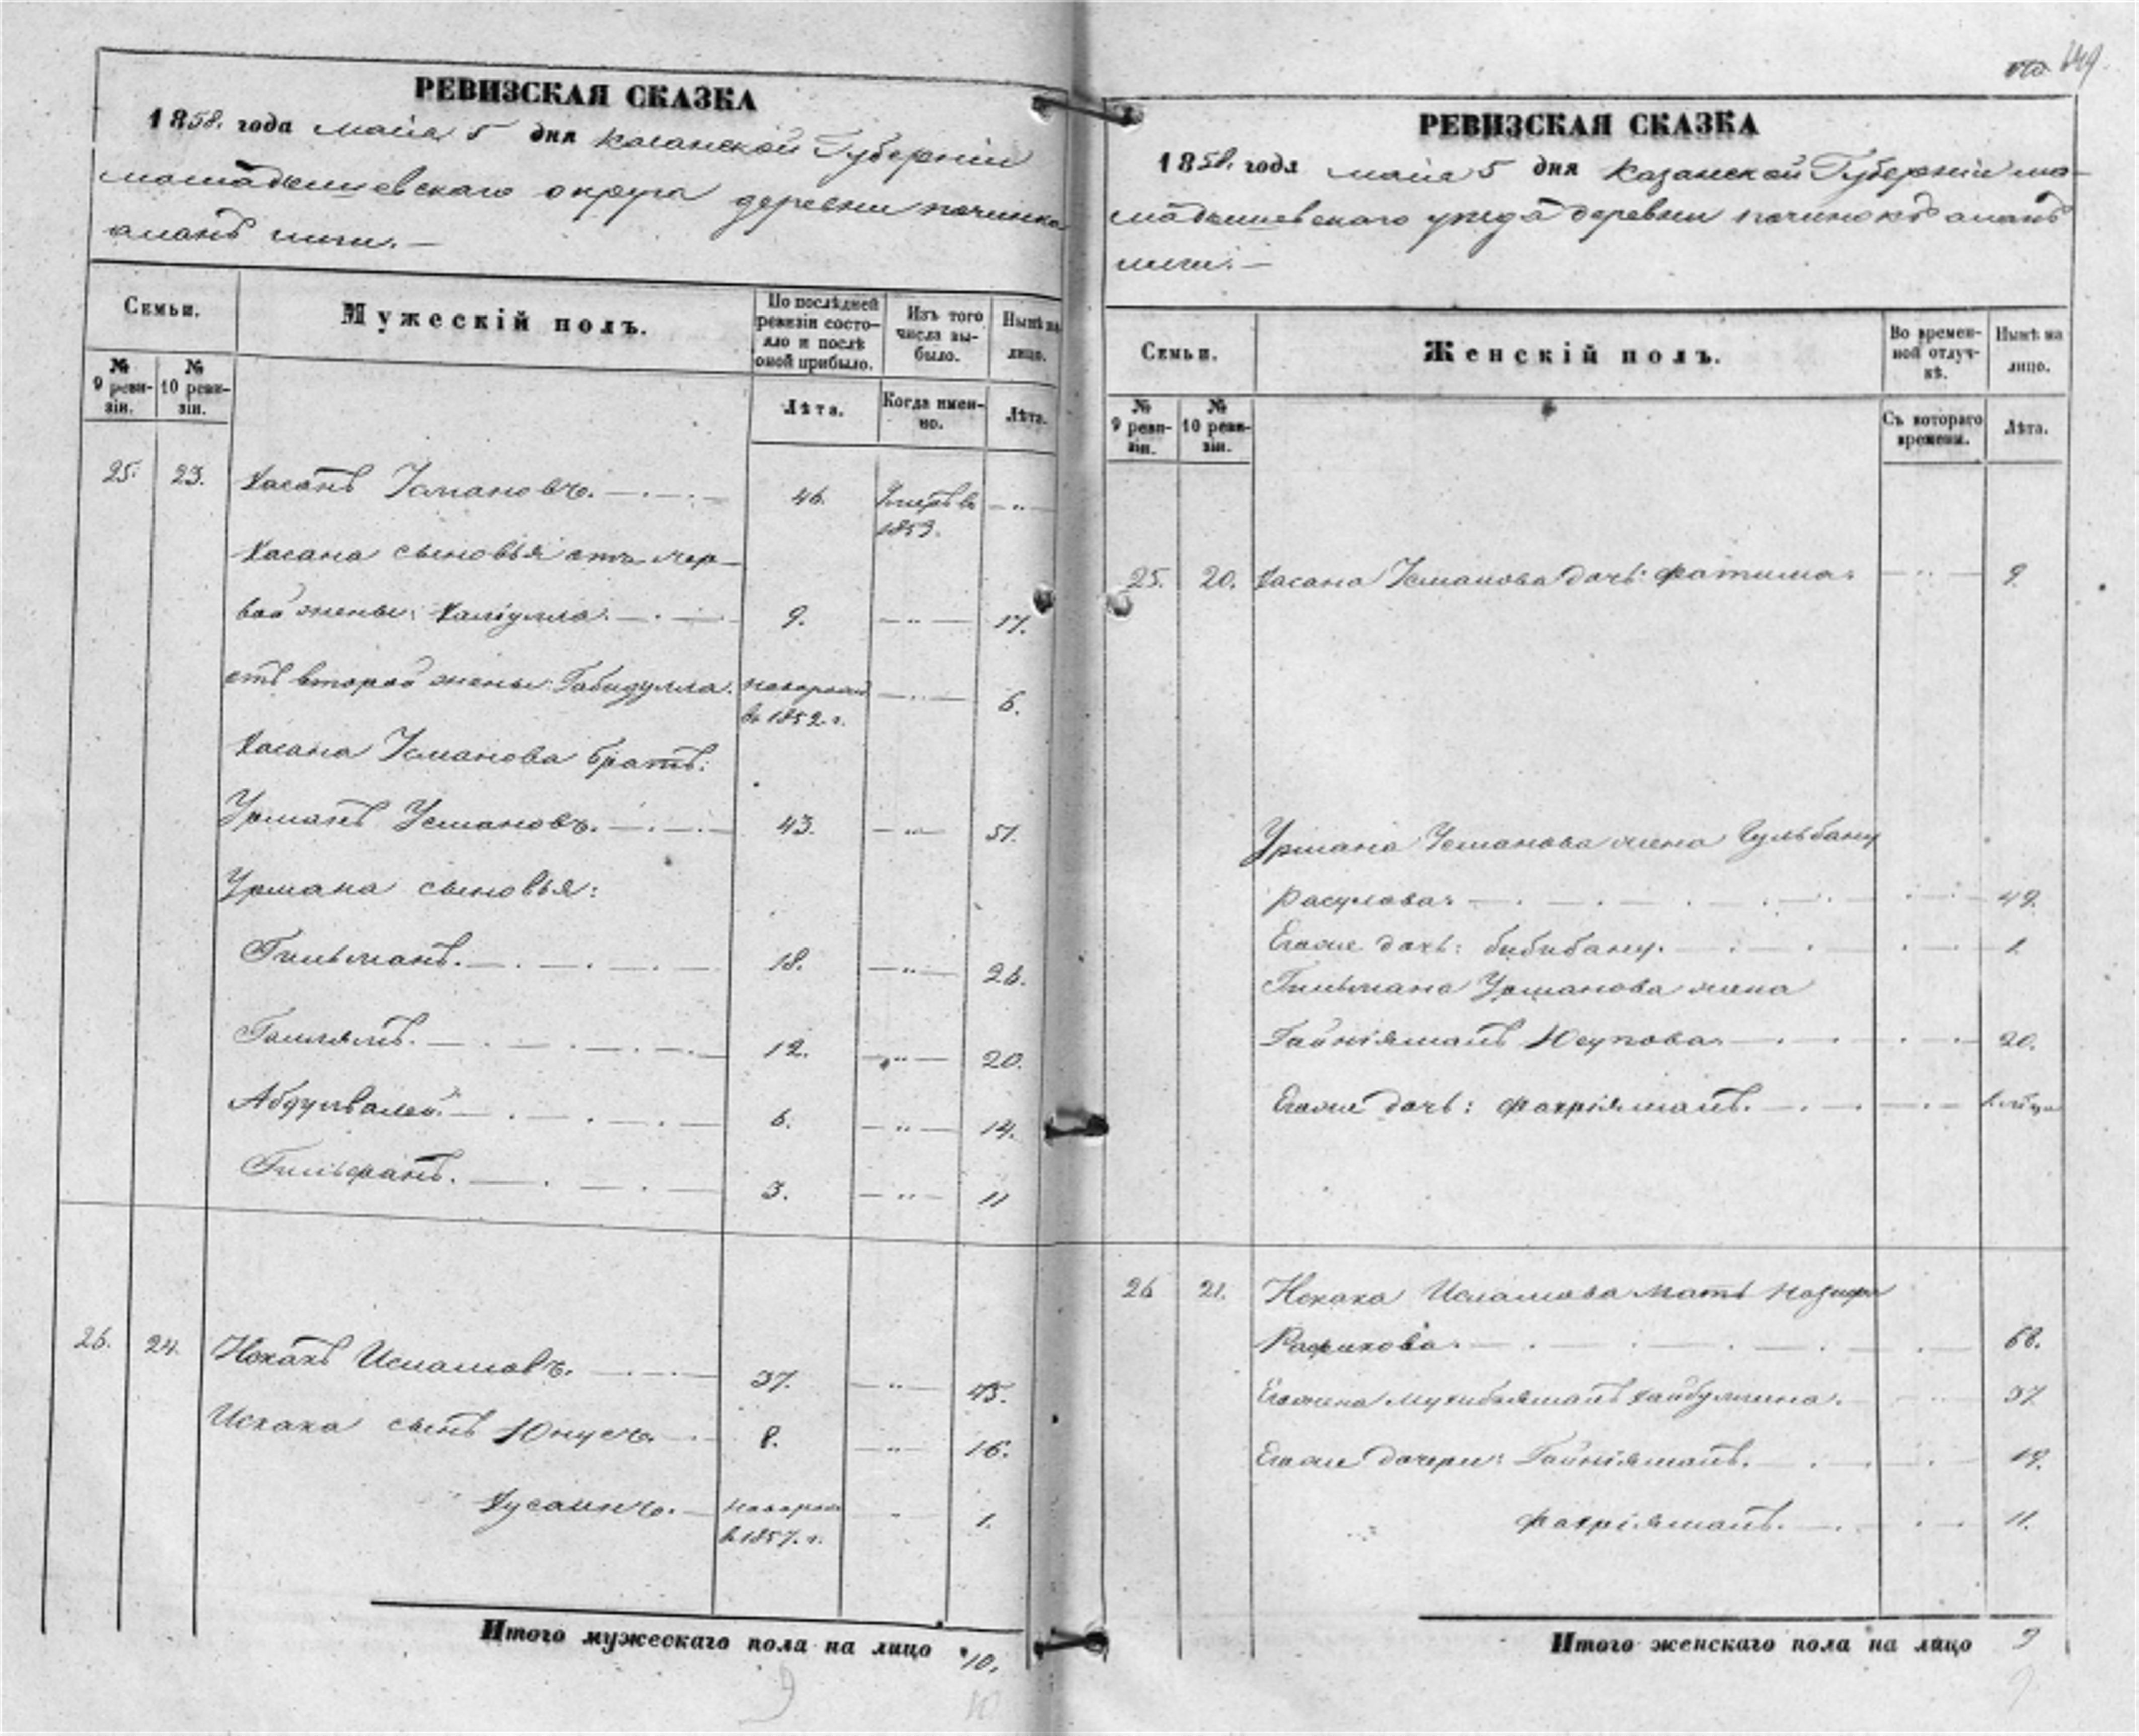 РЕВИЗСКАЯ СКАЗКА
1858. года маия 5 дня Казанской Губернiи
мамадышевскаго округа деревни починка
аланъ
Семьи.
Мужескiй полъ.
По послѣдней ревизiи состояло и послѣ оной прибыло.
Изъ того числа выбыло.
Нынѣ на лицо.
№ 9 ревизiи.
№ 10 ревизiи.
Лѣта.
Когда именно.
Лѣта.
25. 23. Хасанъ Усмановъ. 46. Умеръ въ 1853.
Хасана сыновья отъ пер-
вой жены: Халiулла. 9. 17.
отъ второй жены: Габидулла. новорожд въ 1852. г. 6.
Хасана Усманова братъ:
Урманъ Усмановъ. 43. 51.
Урмана сыновья:
Гильманъ. 18. 26.
12. 20.
Абдулвалей. 6. 14.
Гильфанъ. 3. 11
26. 24. Исхакъ 37. 45.
Исхака сынъ Юнусъ. 8. 16.
Хусаинъ. новорож въ 1857. г. 1.
Итого мужескаго пола на лицо 10.
149.
РЕВИЗСКАЯ СКАЗКА
1858. года маiя 5 дня Казанской Губернiи ма-
мадышевскаго уезда деревни починокъ аланъ
Семьи.
Женскiй полъ.
Во временной отлучкѣ.
Нынѣ на лицо.
№ 9 ревизiи.
№ 10 ревизiи.
Съ котораго времени.
Лѣта.
25. 20. Хасана Усманова дочь: Фатима. 9.
Урмана Усманова жена Гульбану
Расулова. 49.
Егоже дочь: бибибану. 1.
Гильмана Урманова жена
Гайнiямалъ Юсупова. 20.
Егоже дочь: Фахрiямалъ.
26 21. Исхака мать Назифа
Рафикова. 68.
Егожена Мухибъямалъ Хайбуллина. 37
Егоже дочери: Гайнiямалъ. 19.
Фахрiямалъ. 11.
Итого женскаго пола на лицо 9